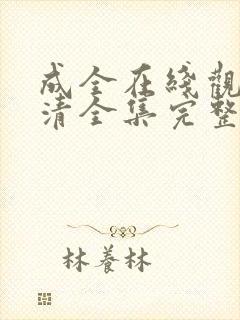 成全在綫觀
清全集完整
林養林